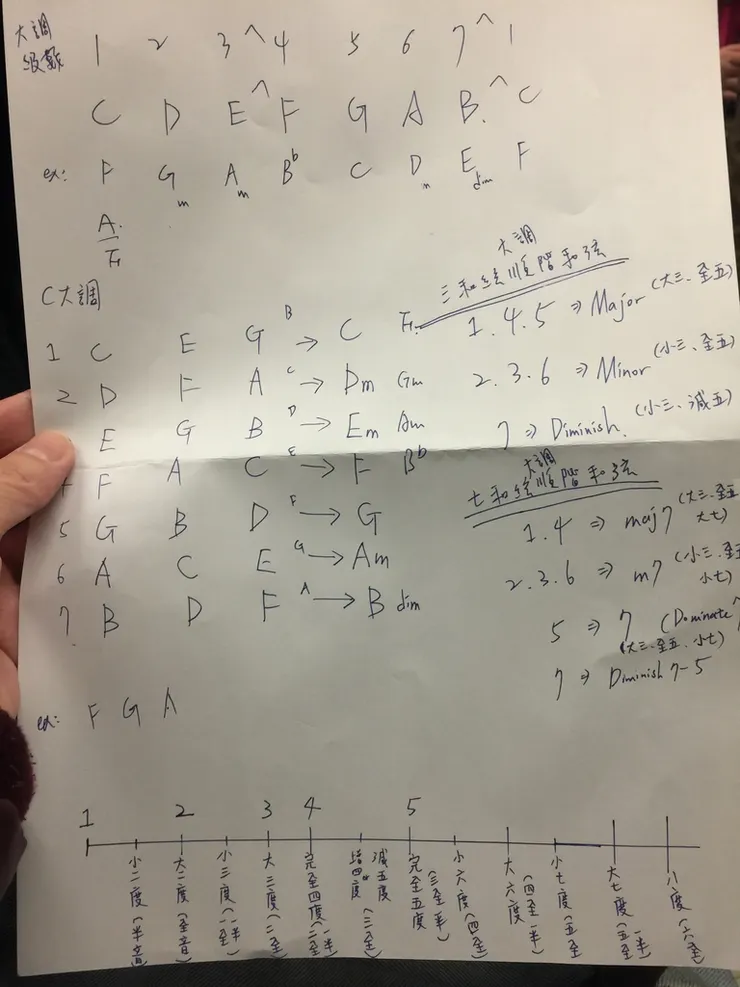 大調
級數
1 2 3 ^ 4 5 6 7 ^ 1
C D E ^ F G A B. ^ C
ex: F Gm Am Bb C Dm Edim F
A.
F
C大調
大調
三和絃順階和弦
1 C E G B → C F.
1. 4. 5 ⇒ Major (大三、全五)
2 D F A C → Dm Gm
2. 3. 6 ⇒ Minor (小三、全五)
E G B D → Em Am
7 ⇒ Diminish. (小三、減五)
F A C E → F Bb
大調
七和絃順階和弦
5 G B D F → G
1. 4 ⇒ maj7 (大三、全五
大七)
6 A C E G → Am
2. 3. 6 ⇒ m7 (小三、全五
小七)
7 B D F A → B dim
5 ⇒ 7 (Dominate
(大三、全五、小七)
7 ⇒ Diminish 7-5
ex: F G A
1 2 3 4 5
小二度(半音)
大二度(全音)
小三度(一全一半)
大三度(二全)
完全四度(二全一半)
增四度 減五度(三全)
完全五度(三全半)
小六度(四全)
大六度(四全一半)
小七度(五全
大七度(五全一半)
八度(六全)